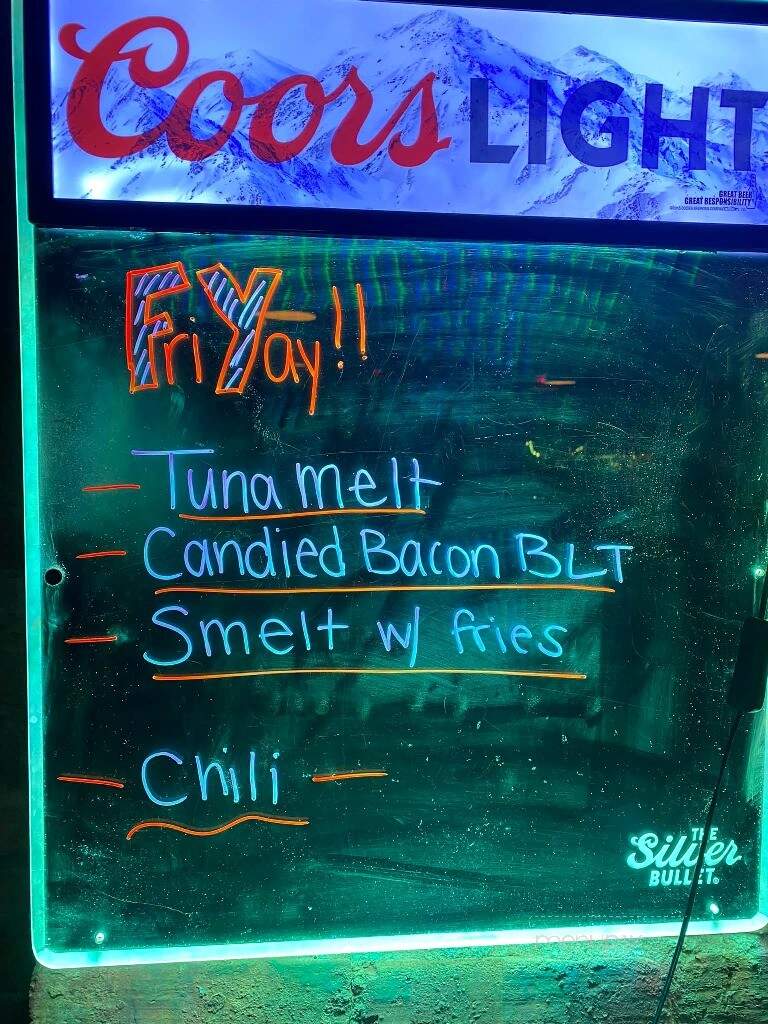 Coors LIGHT
GREAT BEER
GREAT RESPONSIBILITY
FriYay!!
- Tuna melt
- Candied Bacon BLT
- Smelt w/ fries
- Chili -
THE
Silver
BULLET®